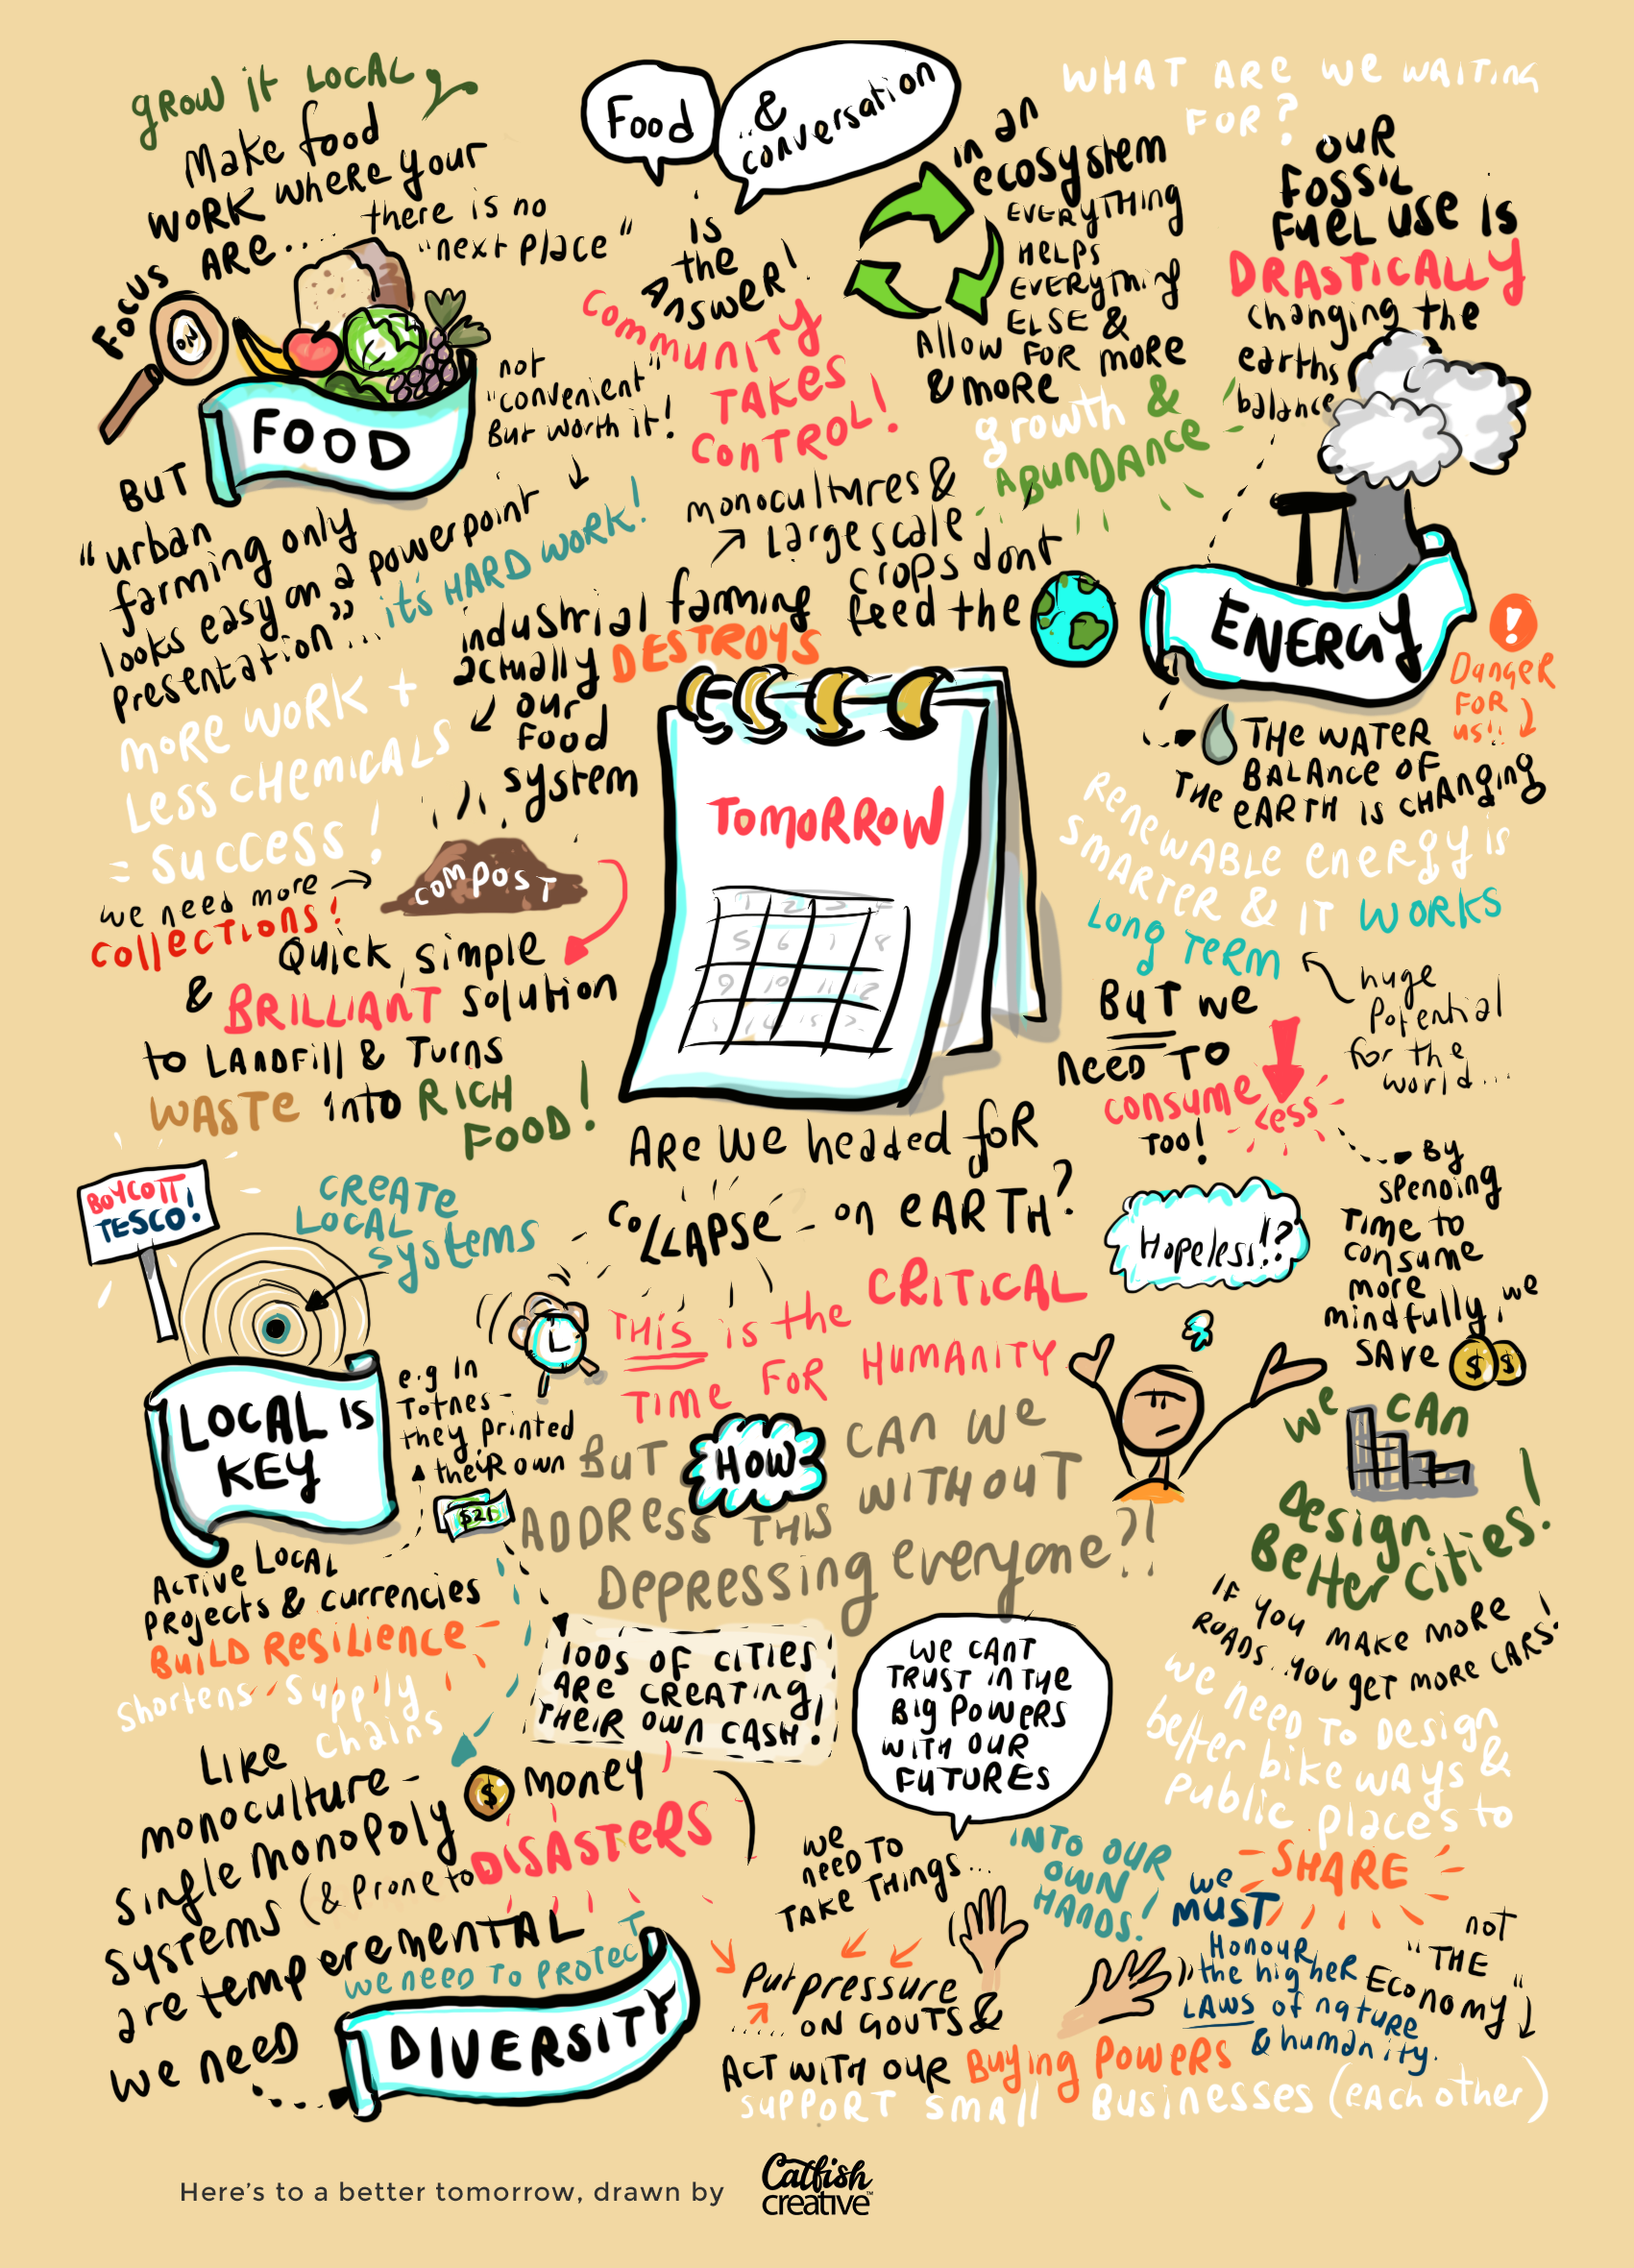 GROW IT LOCAL
Make food
WORK WHERE your
FOCUS
ON
ARE....
there is no
"next place"
FOOD
not
"convenient"
But worth it!
BUT
"urban
farming only
looks easy on a powerpoint
presentation"...
it's HARD WORK!
MORE WORK +
LESS CHEMICALS
= SUCCESS!
we need more
COLLECTIONS!
COMPOST
Quick, simple
& BRILLIANT solution
to LANDFILL & TURNS
WASTE into RICH
FOOD!
Food
& conversation
is
the
ANSWER!
COMMUNITY
TAKES
CONTROL!
in an
ecosystem
EVERYTHING
HELPS
EVERYTHING
ELSE &
Allow FOR more
& MORE
growth &
ABUNDANCE
monocultures &
Large scale
crops dont
feed the
industrial farming
actually DESTROYS
our
food
system
WHAT ARE WE WAITING
FOR?
OUR
FOSSIL
FUEL USE IS
DRASTICALLY
changing the
earths
balance
ENERGY
!
DANGER
FOR
us!!
THE WATER
BALANCE OF
THE EARTH IS CHANGING
RENEWABLE ENERGY IS
SMARTER & IT WORKS
LONG TERM
huge
Potential
for the
world...
BUT we
NEED TO
CONSUME
LESS
TOO!
By
spending
TIME to
consume
more
mindfully, we
SAVE $ $
TOMORROW
1 2 3 4
5 6 7 8
9 10 11 12
ARE WE headed foR
COLLAPSE - on EARTH?
THIS is the CRITICAL
TIME FOR HUMANITY
BUT HOW CAN WE
ADDRESS THIS WITHOUT
DEPRESSING everyone?!
Hopeless!?
BOYCOTT
TESCO!
CREATE
LOCAL
systems
LOCAL IS
KEY
e.g IN
TOTNES -
they printed
theiR own
$21
ACTIVE LOCAL
PROJECTS & currencies
BUILD RESILIENCE -
shortens supply
chains
100S OF CITIES
ARE CREATING
THEIR OWN CASH!
LIKE
monoculture -
single Monopoly $ money
systems (& prone to DISASTERS
are temperemental
we need
WE NEED TO PROTECT
DIVERSITY
WE CANT
TRUST IN THE
BIG POWERS
WITH OUR
FUTURES
we
NEED TO
TAKE THINGS...
INTO OUR
OWN
HANDS!
Put pressure
ON GOVTS &
ACT WITH OUR Buying POWERS
SUPPORT SMALL BUSINESSES (EACH OTHER)
We CAN
Design
Better Cities!
IF YOU MAKE MORE
ROADS.. YOU GET MORE CARS!
we NEED TO DESIGN
better bike WAYS &
Public places to
SHARE
we
MUST
Honour
the higher
LAWS of nature
& humanity.
not
"THE
Economy"
Here's to a better tomorrow, drawn by
Catfish
creative™